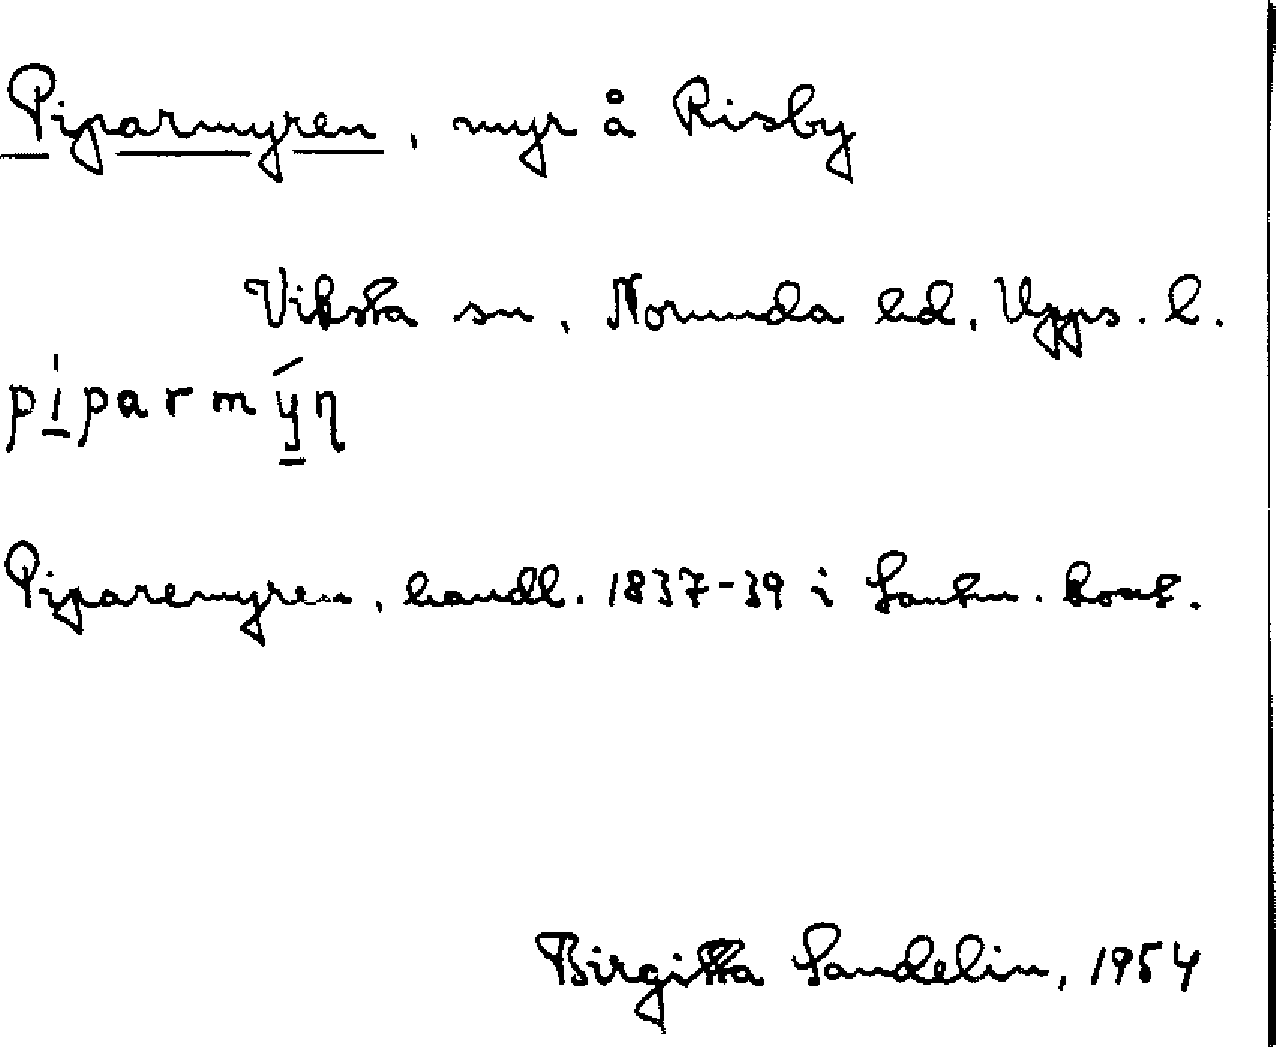 Piparmyren, myr å Risby
Viksta sn, Norunda hd, Upps. l.
píparmýn
Piparemyren, handl. 1837-39 i Lantm. kont.
Birgitta Sandelin, 1954